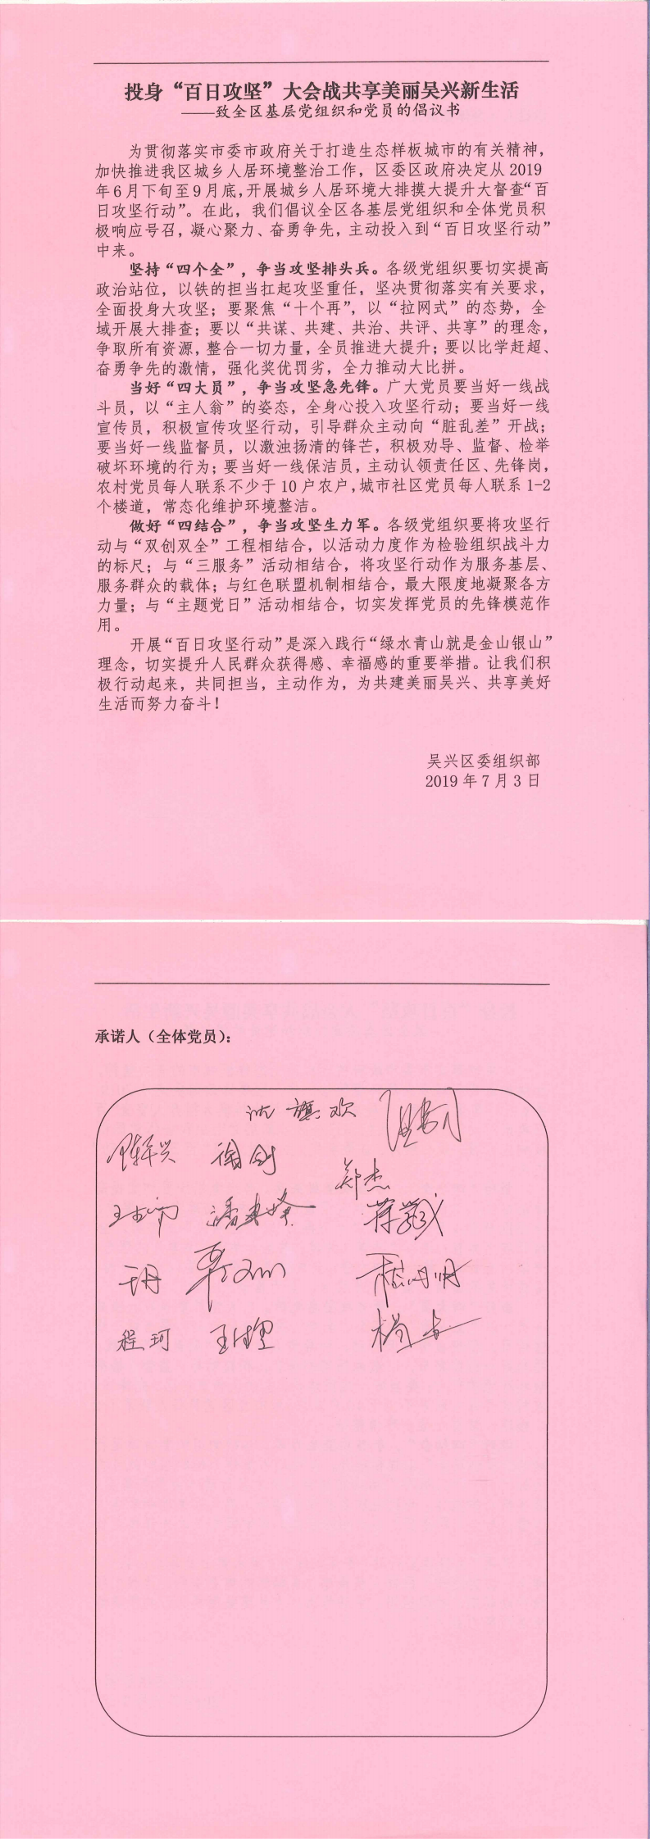 投身“百日攻坚”大会战共享美丽吴兴新生活
——致全区基层党组织和党员的倡议书
为贯彻落实市委市政府关于打造生态样板城市的有关精神，
加快推进我区城乡人居环境整治工作，区委区政府决定从2019
年6月下旬至9月底，开展城乡人居环境大排摸大提升大督查“百
日攻坚行动”。在此，我们倡议全区各基层党组织和全体党员积
极响应号召，凝心聚力、奋勇争先，主动投入到“百日攻坚行动”
中来。
坚持“四个全”，争当攻坚排头兵。各级党组织要切实提高
政治站位，以铁的担当扛起攻坚重任，坚决贯彻落实有关要求，
全面投身大攻坚；要聚焦“十个再”，以“拉网式”的态势，全
域开展大排查；要以“共谋、共建、共治、共评、共享”的理念，
争取所有资源，整合一切力量，全员推进大提升；要以比学赶超、
奋勇争先的激情，强化奖优罚劣，全力推动大比拼。
当好“四大员”，争当攻坚急先锋。广大党员要当好一线战
斗员，以“主人翁”的姿态，全身心投入攻坚行动；要当好一线
宣传员，积极宣传攻坚行动，引导群众主动向“脏乱差”开战；
要当好一线监督员，以激浊扬清的锋芒，积极劝导、监督、检举
破坏环境的行为；要当好一线保洁员，主动认领责任区、先锋岗，
农村党员每人联系不少于10户农户，城市社区党员每人联系1-2
个楼道，常态化维护环境整洁。
做好“四结合”，争当攻坚生力军。各级党组织要将攻坚行
动与“双创双全”工程相结合，以活动力度作为检验组织战斗力
的标尺；与“三服务”活动相结合，将攻坚行动作为服务基层、
服务群众的载体；与红色联盟机制相结合，最大限度地凝聚各方
力量；与“主题党日”活动相结合，切实发挥党员的先锋模范作
用。
开展“百日攻坚行动”是深入践行“绿水青山就是金山银山”
理念，切实提升人民群众获得感、幸福感的重要举措。让我们积
极行动起来，共同担当，主动作为，为共建美丽吴兴、共享美好
生活而努力奋斗！
吴兴区委组织部
2019年7月3日
承诺人（全体党员）：
沈旗欢
徐剑
郑杰
潘建峰
程珂